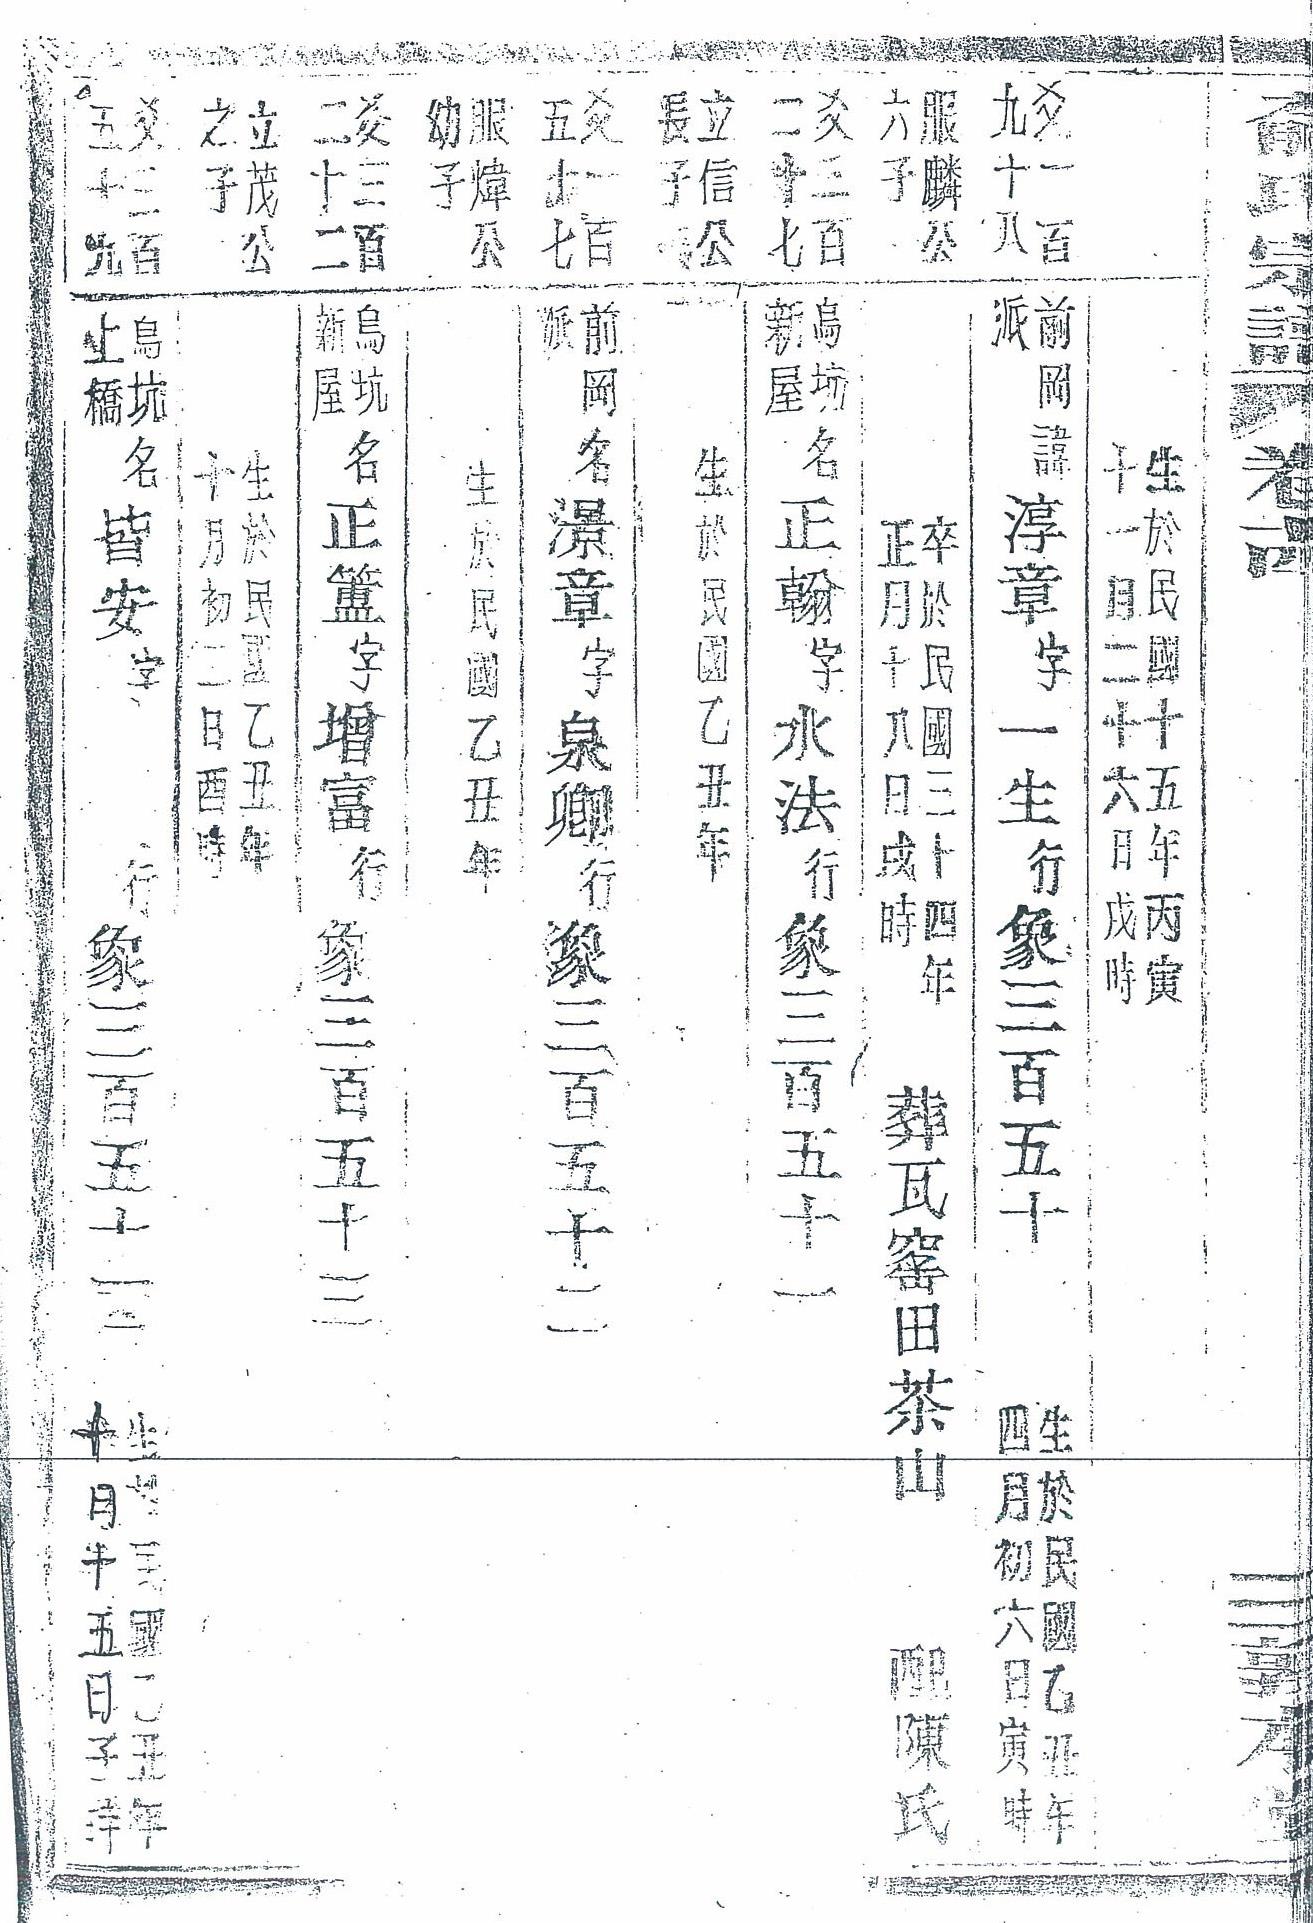 氏宗譜 卷
敦本堂
生於民國十五年丙寅
十一月二十六日戌時
爻一百
九十八
前岡
派
諱淳章字一生行象三百五十
生於民國乙丑年
四月初六日寅時
服麟公
六子
卒於民國三十四年
正月十八日戌時
葬瓦窰田茶山
配陳氏
爻三百
二十七
烏坑
新屋
名正翰字水法行象三百五十一
立信公
長子
生於民國乙丑年
爻一百
五十七
前岡
派
名澋章字泉卿行象三百五十二
服煒公
幼子
生於民國乙丑年
爻三百
二十二
烏坑
新屋
名正簠字增富行象三百五十三
立茂公
之子
生於民國乙丑年
十月初二日酉時
爻三百
五十九
烏坑
上橋
名皆安字 行象三百五十三
生於民國乙丑年
十月十五日子時